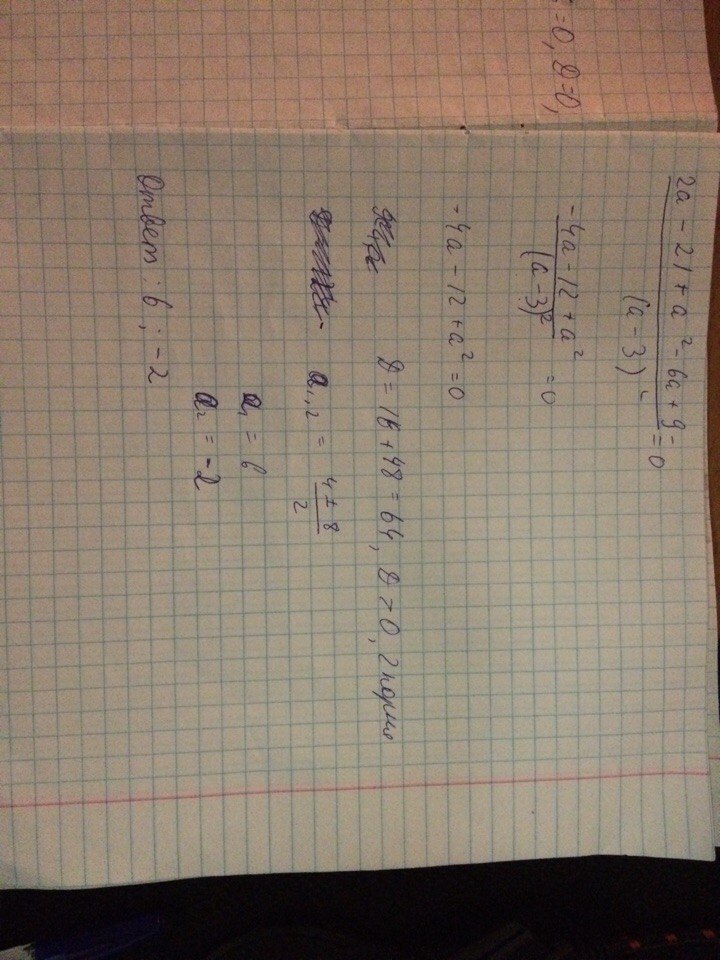 =0, D=0,
2a - 21 + a² - 6a + 9 = 0
(a - 3)²
-4a - 12 + a² = 0
(a - 3)²
-4a - 12 + a² = 0
D = 16 + 48 = 64, D > 0, 2 корня
a₁,₂ = 4 ± 8
2
a₁ = 6
a₂ = -2
Ответ: 6; -2